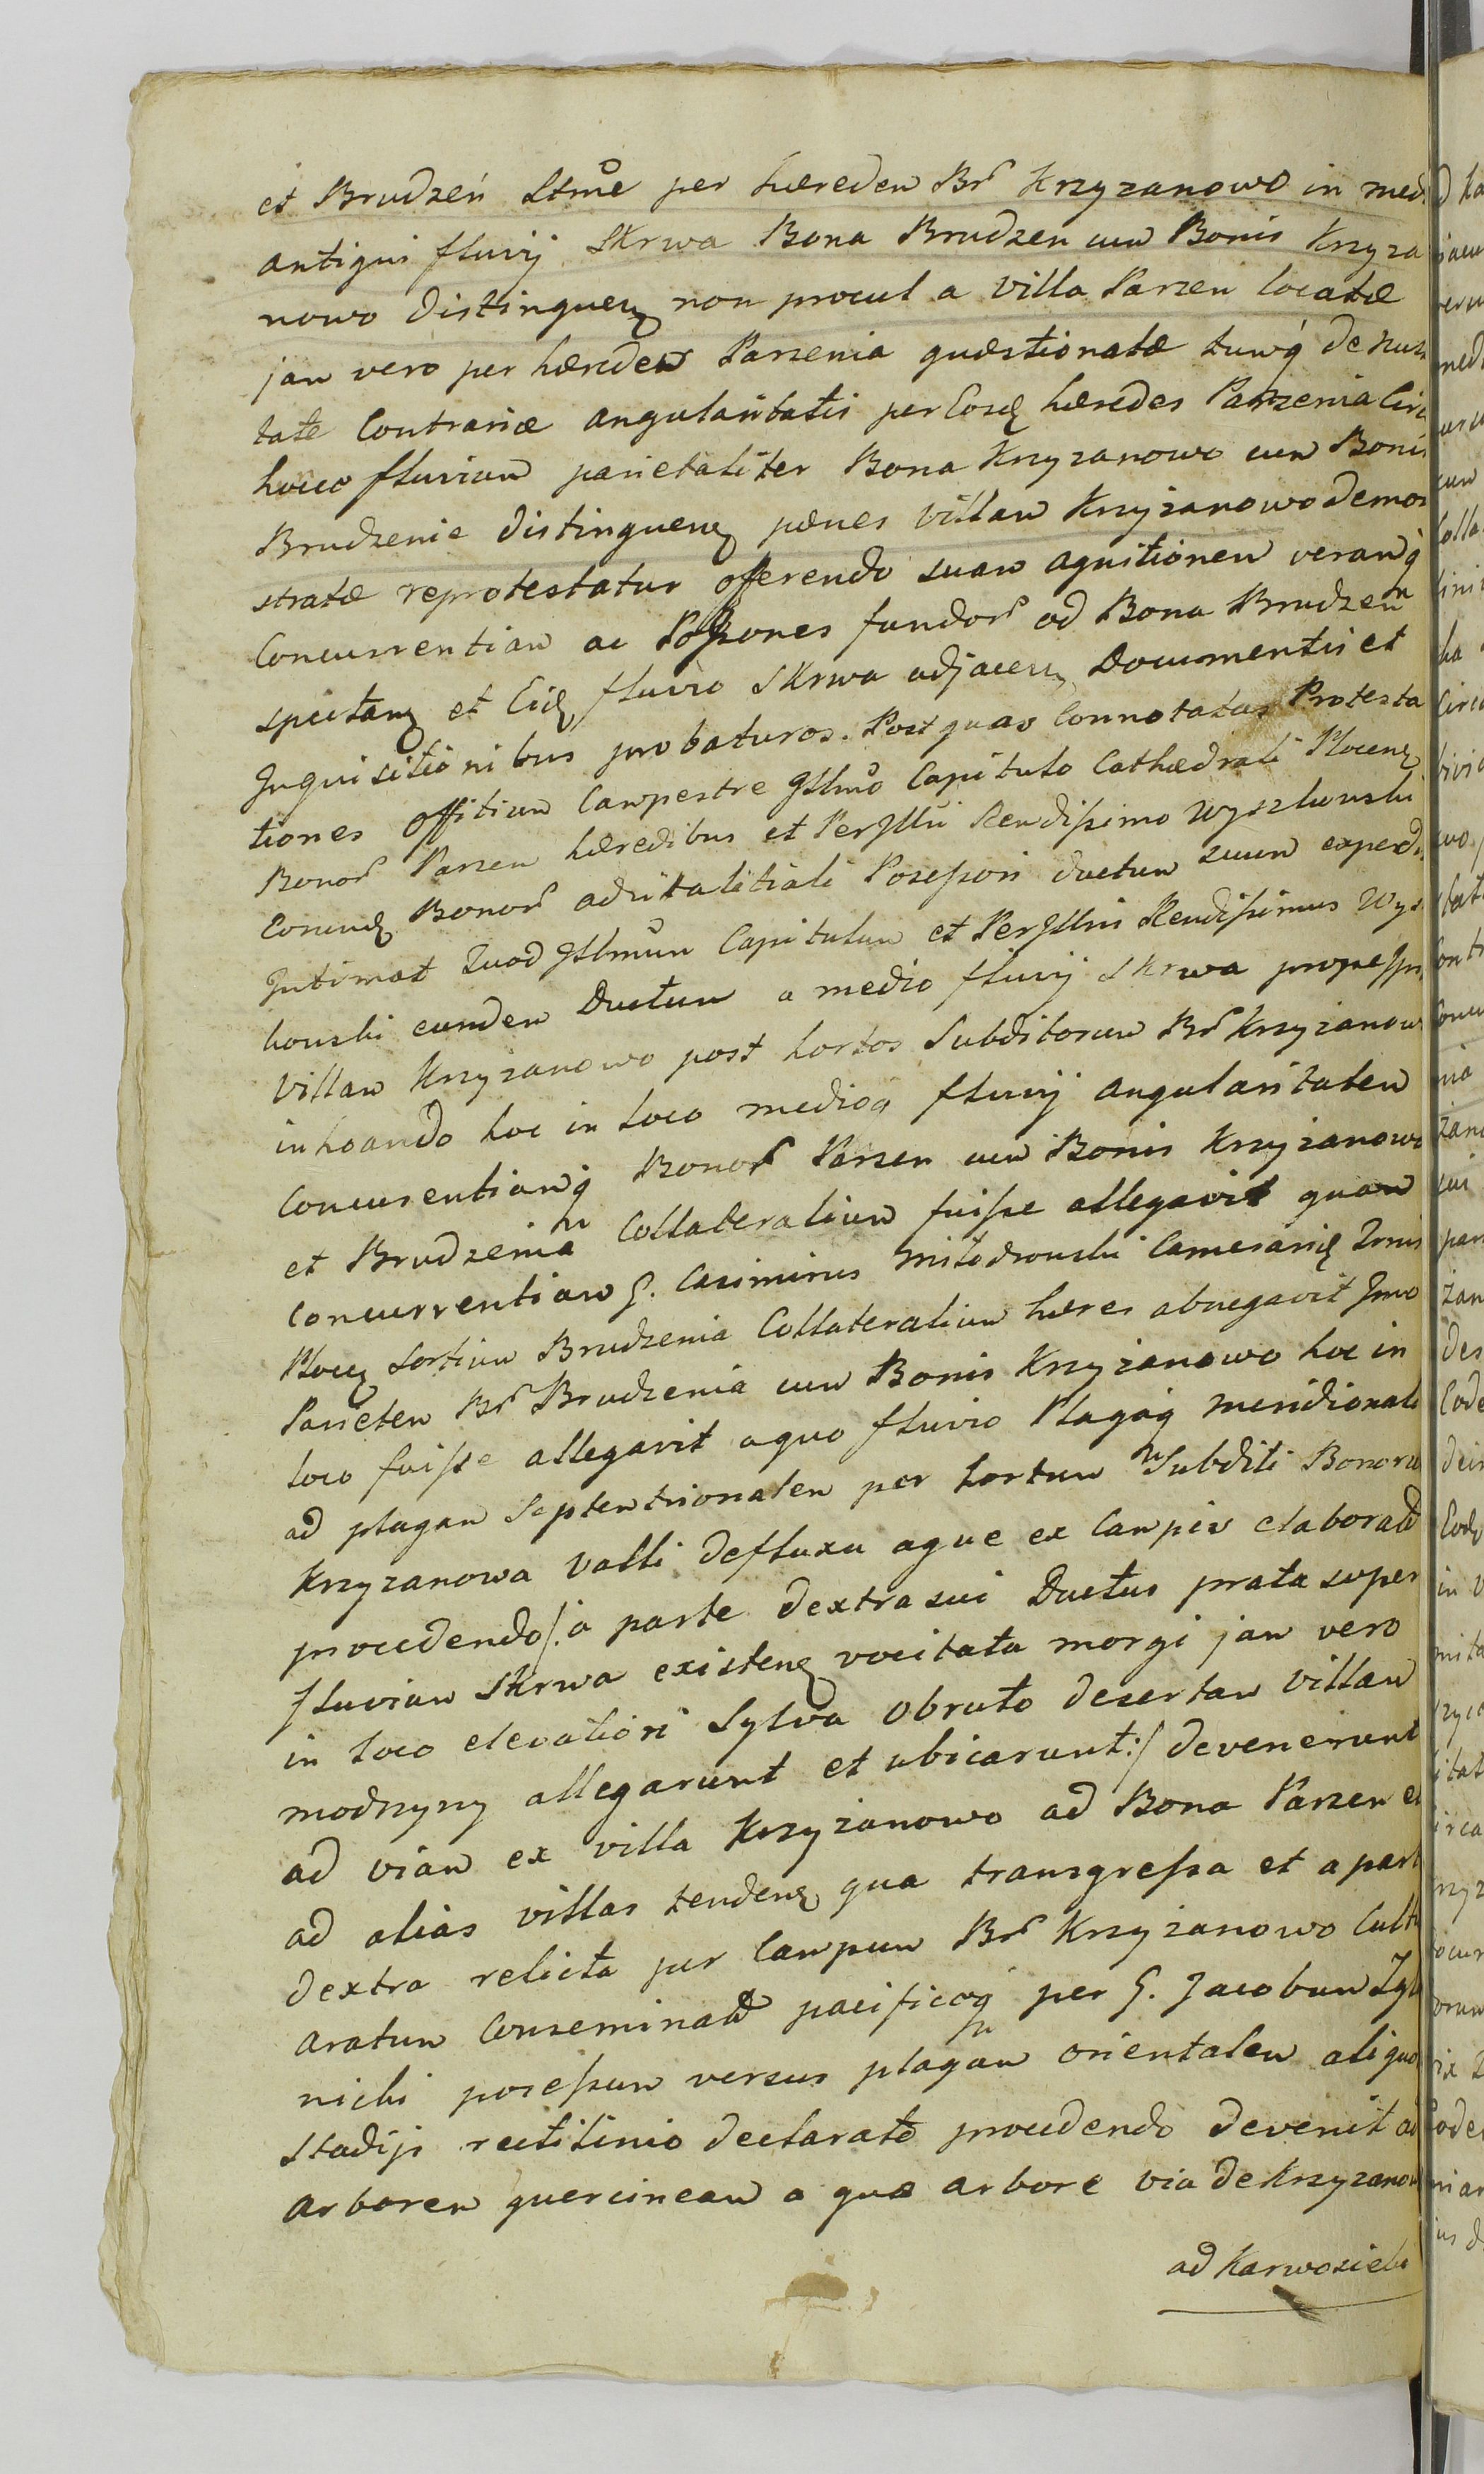 et Brudzeń Ltme per hæredem Br Krzyzanowo in med
antiqui fluvij Skrwa Bona Brudzen cum Bonis Krzyza
nowo distinguenȝ non procul a villa Parzen locatæ
jam vero per hæredes Parzenia quæstionatæ tumq́ de
tate Contrariæ angularitatis per Eosd hæredes Parzenia Circ
hocce fluvium parietaliter Bona Krzyzanowo cum Bonis
Brudzenie distinguenȝ pænes Villam Krzyzanowo demon
stratæ reprotestatur offerendo suam agnitionem veramq́
Concurrentiam ac Possiones fundor ad Bona Brudzen
spectanȝ et Eidȝ fluvio Skrwa adjacenȝ Documentis et
Inquisitionibus probaturos. Post quas Connotatas Protesta
tiones Offitium Campestre Illmo Capitulo Cathædrali Plocenȝ
Bonor Parzen hæredibus et PerIllri Rendissimo Wyszkowski
Eorumdȝ Bonor advitalitiali Posessori ductum suum expedi
Intimat Quod Illmum Capitulum et PerIllris Rendissimus Wys
kowski eundem Ductum a medio fluvij Skrwa prope Ipsa
Villam Krzyzanowo post hortos Subditorum Br Krzyzanow
inhoando hoc in loco medioq fluvij angularitatem
Concurentiamq́ Bonor Parzen cum Bonis Krzyzanowo
et Brudzenia Collateralium fuisse allegavit quam
concurrentiam G. Casimirus Miłodrowski Camerariȝ Trnis
Plocȝ sortium Brudzenia Collateralium hæres abnegavit Imo
Parietem Br Brudzenia cum Bonis Krzyzanowo hoc in
loco fuisse allegavit a quo fluvio Plagaq meridionali
ad plagam Septentrionalem per hortum Subditi Bonoru
Krzyzanowa Valli defluxu aque ex Campis elaborato
procedendo /: a parte dextra sui Ductus prata super
fluvium Skrwa existenȝ vocitata morgi jam vero
in loco elevatiori Sylva obruto desertam villam
modrzyny allegarunt et ubicarunt :/ devenerunt
ad viam ex villa Krzyzanowo ad Bona Parzen et
ad alias villas tendenȝ qua transgressa et a part
dextra relicta per Campum Br Krzyzanowo Cult
aratum Conseminato pacificoq per G. Jacobum
nicki posessum versus plagam orientalem aliquo
stadijs rectilinio declarato procedendo devenit ad
arborem quercineam a qua arbore via de Krzyzanow
ad Karwosieki